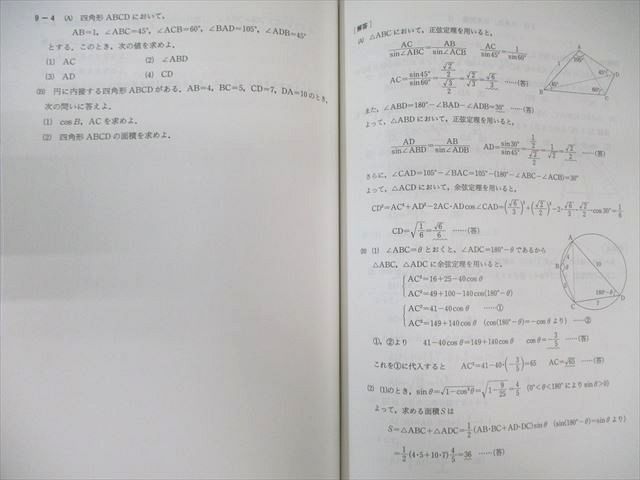 9-4 (A) 四角形ABCDにおいて,
AB=1, ∠ABC=45°, ∠ACB=60°, ∠BAD=105°, ∠ADB=45°
とする。このとき, 次の値を求めよ。
(1) AC (2) ∠ABD
(3) AD (4) CD
(B) 円に内接する四角形ABCDがある。AB=4, BC=5, CD=7, DA=10のとき,
次の問いに答えよ。
(1) cosB, ACを求めよ。
(2) 四角形ABCDの面積を求めよ。
[解答]
(A) △ABCにおいて, 正弦定理を用いると,
AC/sin∠ABC=AB/sin∠ACB AC/sin45°=1/sin60°
AC=sin45°/sin60°=(√2/2)/(√3/2)=√2/√3=√6/3 ……(答)
また, ∠ABD=180°-∠BAD-∠ADB=30° ……(答)
よって, △ABDにおいて, 正弦定理を用いると,
AD/sin∠ABD=AB/sin∠ADB AD=sin30°/sin45°=(1/2)/(√2/2)=1/√2=√2/2 ……(答)
さらに, ∠CAD=105°-∠BAC=105°-(180°-∠ABC-∠ACB)=30°
よって, △ACDにおいて, 余弦定理を用いると,
CD²=AC²+AD²-2AC·ADcos∠CAD=(√6/3)²+(√2/2)²-2·√6/3·√2/2·cos30°=1/6
CD=√(1/6)=√6/6 ……(答)
A
1
105°
45°
D
45°
60°
B
C
(B) (1) ∠ABC=θとおくと, ∠ADC=180°-θであるから
△ABC, △ADCに余弦定理を用いると,
AC²=16+25-40cosθ
AC²=49+100-140cos(180°-θ)
AC²=41-40cosθ ……①
AC²=149+140cosθ (cos(180°-θ)=-cosθより) ……②
①, ②より 41-40cosθ=149+140cosθ cosθ=-3/5 ……(答)
これを①に代入すると AC²=41-40·(-3/5)=65 AC=√65 ……(答)
A
4
10
B
θ
5
180°-θ
D
C
7
(2) (1)のとき, sinθ=√(1-cos²θ)=√(1-9/25)=4/5 (0°<θ<180°によりsinθ>0)
よって, 求める面積Sは
S=△ABC+△ADC=1/2(AB·BC+AD·DC)sinθ (sin(180°-θ)=sinθより)
=1/2(4·5+10·7)4/5=36 ……(答)